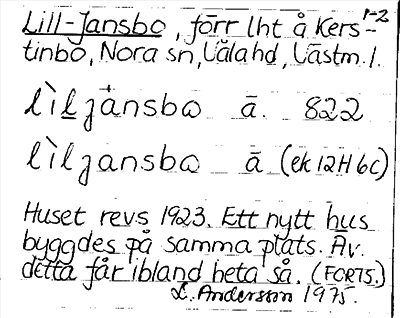 1-2
Lill-Jansbo, förr lht å Kers-
tinbo, Nora sn, Våla hd, Västm. l.
lìljánsbo ā. 822
lìljansbo ā (ek 12H 6c)
Huset revs 1923. Ett nytt hus
byggdes på samma plats. Äv.
detta får ibland heta så. (FORTS.)
L. Andersson 1975.